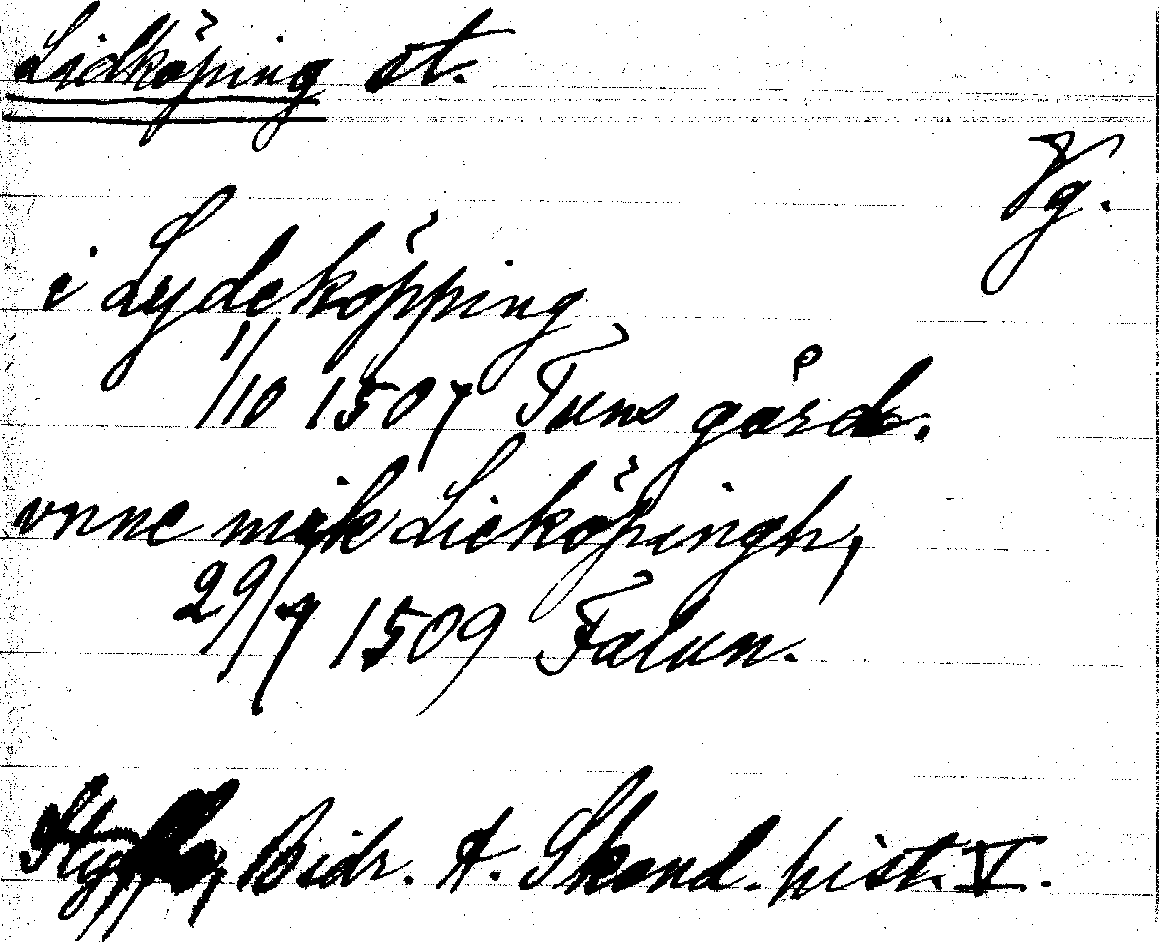 Lidköping st.
Vg.
i Lydeköpping
1/10 1507 Tuns gård.
vnne mik Lieköpingh,
29/7 1509 Falun.
Styffe, Bidr. t. Skand. hist. V.